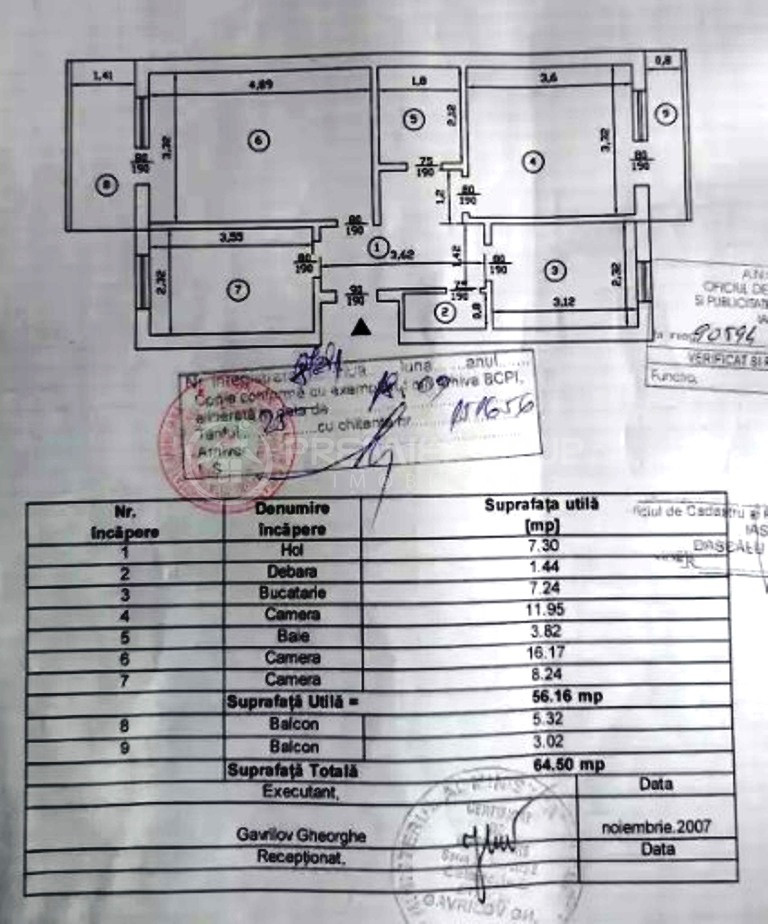 1,41
4,89
1,8
3,6
0,8
3,32
6
5
2,12
4
3,32
9
8
80
190
75
190
80
190
80
190
1,2
80
190
3,55
1
3,62
1,42
80
190
80
190
2,32
7
3
2,32
90
190
75
190
2
0,8
3,12
A.N.
OFICIUL DE
SI PUBLICITATE
IA
90594
VERIFICAT SI
Functia,
Nr. inregistrat luna anul
Copie conforma cu exemplarul din arhiva BCPI,
eliberata in data de 18, 09
Tariful 23 cu chitanta nr. 151656
Arhivar
L.S.
PREMIER GROUP
IMOB
Nr. încăpere Denumire încăpere Suprafaţa utilă [mp]
1 Hol 7.30
2 Debara 1.44
3 Bucatarie 7.24
4 Camera 11.95
5 Baie 3.82
6 Camera 16.17
7 Camera 8.24
Suprafaţă Utilă = 56.16 mp
8 Balcon 5.32
9 Balcon 3.02
Suprafaţă Totală 64.50 mp
Oficiul de Cadastru si
IAS
DASCALU
Executant, Data
Gavrilov Gheorghe noiembrie.2007
Recepţionat, Data
CERTIFICAT
GAVRILOV GH.